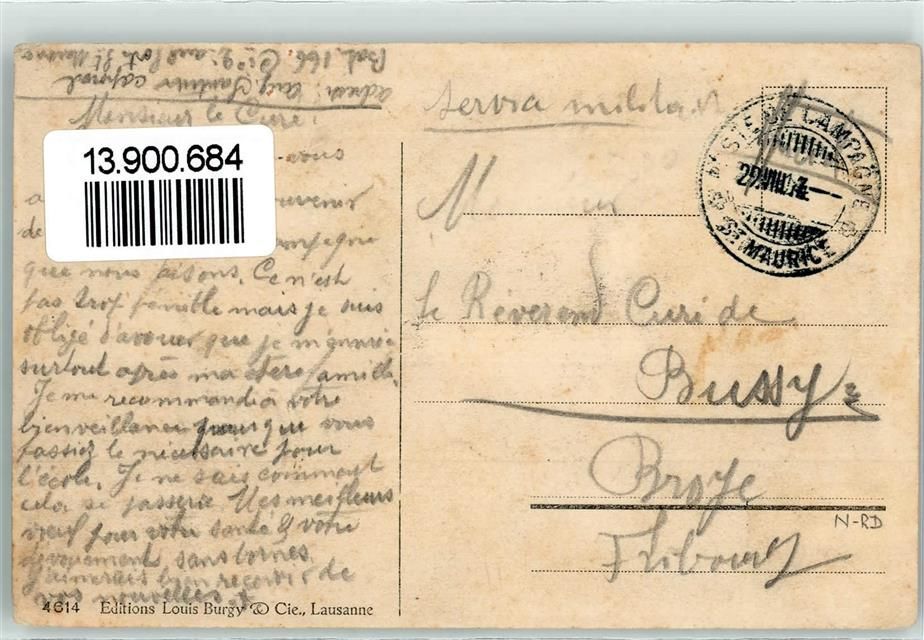 Bat. 166. Cie 2
adress: caporal
Monsieur le Curé!
13.900.684
vous
souvenir
de
que nous faisons. Ce n'est
pas trop penible mais je suis
obligé d'avouer que je m'ennuie
surtout après ma chère famille.
Je me recommande à votre
bienveillance pour que vous
fassiez le nécessaire pour
l'école. Je ne sais comment
cela se passera. Mes meilleurs
vœux pour votre santé & votre
dévouement sans bornes.
J'aimerais bien recevoir de
vos nouvelles
4614 Editions Louis Burgy & Cie., Lausanne
service militaire
STE DE CAMPAGNE
ST MAURICE
M
le Réverend Curé de
Bussy
Broye
Fribourg
N-RD